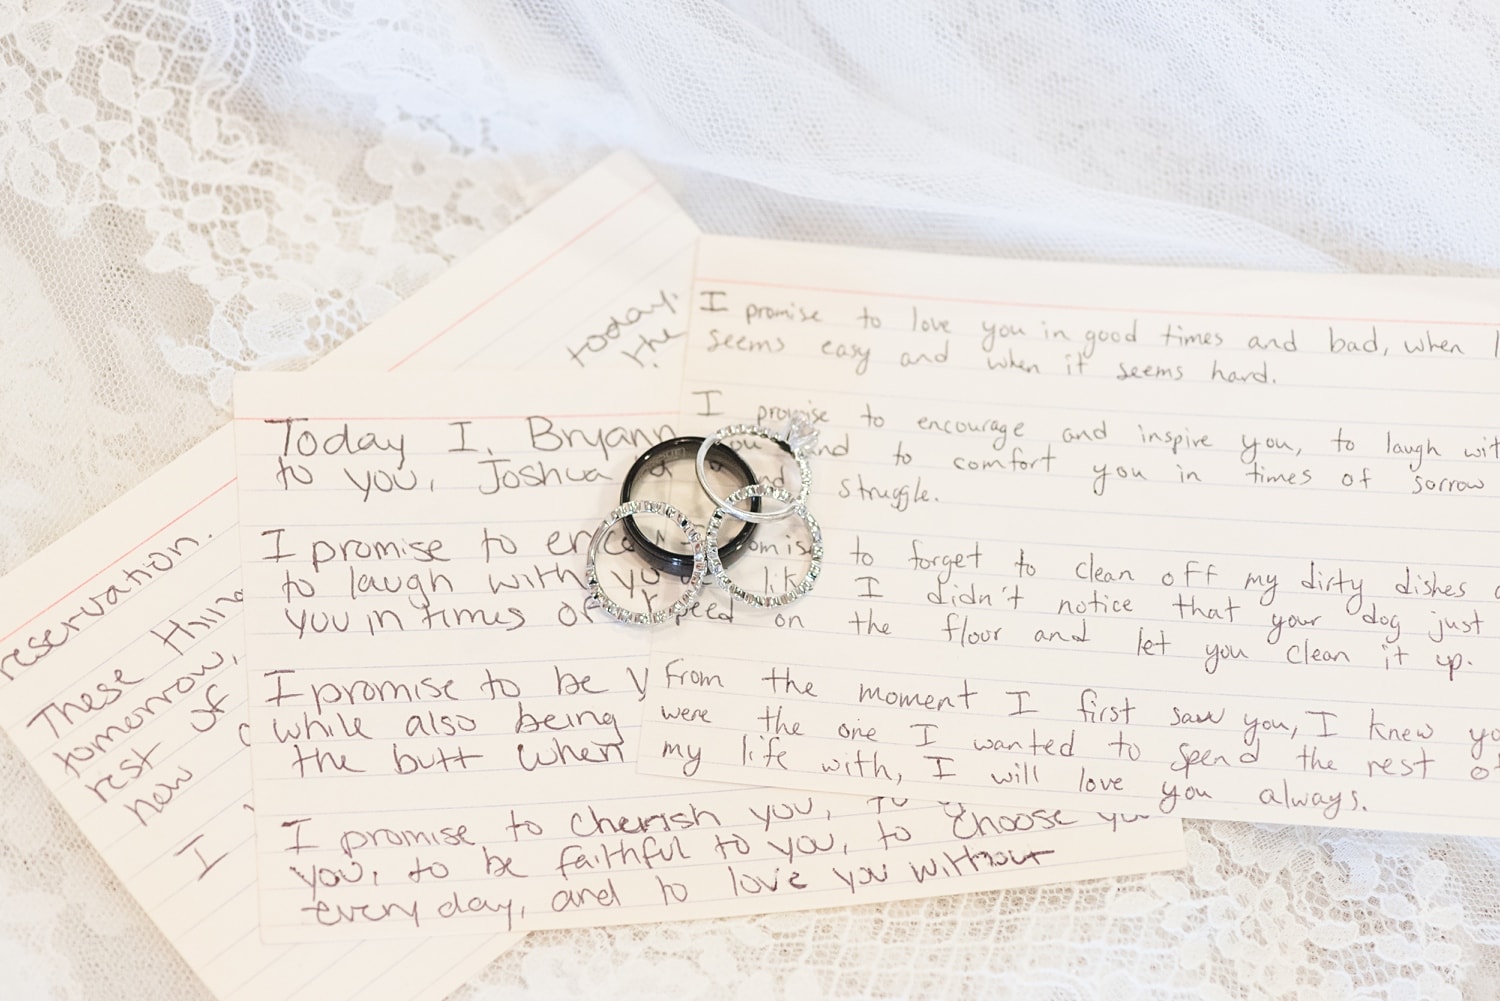 today.
the
I promise to love you in good times and bad, when
seems easy and when it seems hard.
I promise to encourage and inspire you, to laugh
you and to comfort you in times of sorrow
and struggle.
to forget to clean off my dirty dishes
like I didn't notice that your dog just
peed on the floor and let you clean it up.
From the moment I first saw you, I knew
were the one I wanted to spend the rest of
my life with, I will love you always.
Today I, Bryann
to you, Joshua
I promise to
to laugh with
you in times of
I promise to be
while also being
the butt when
I promise to cherish you, to
you, to be faithful to you, to choose
every day, and to love you without
reservation.
These
tomorrow,
rest of
now
I